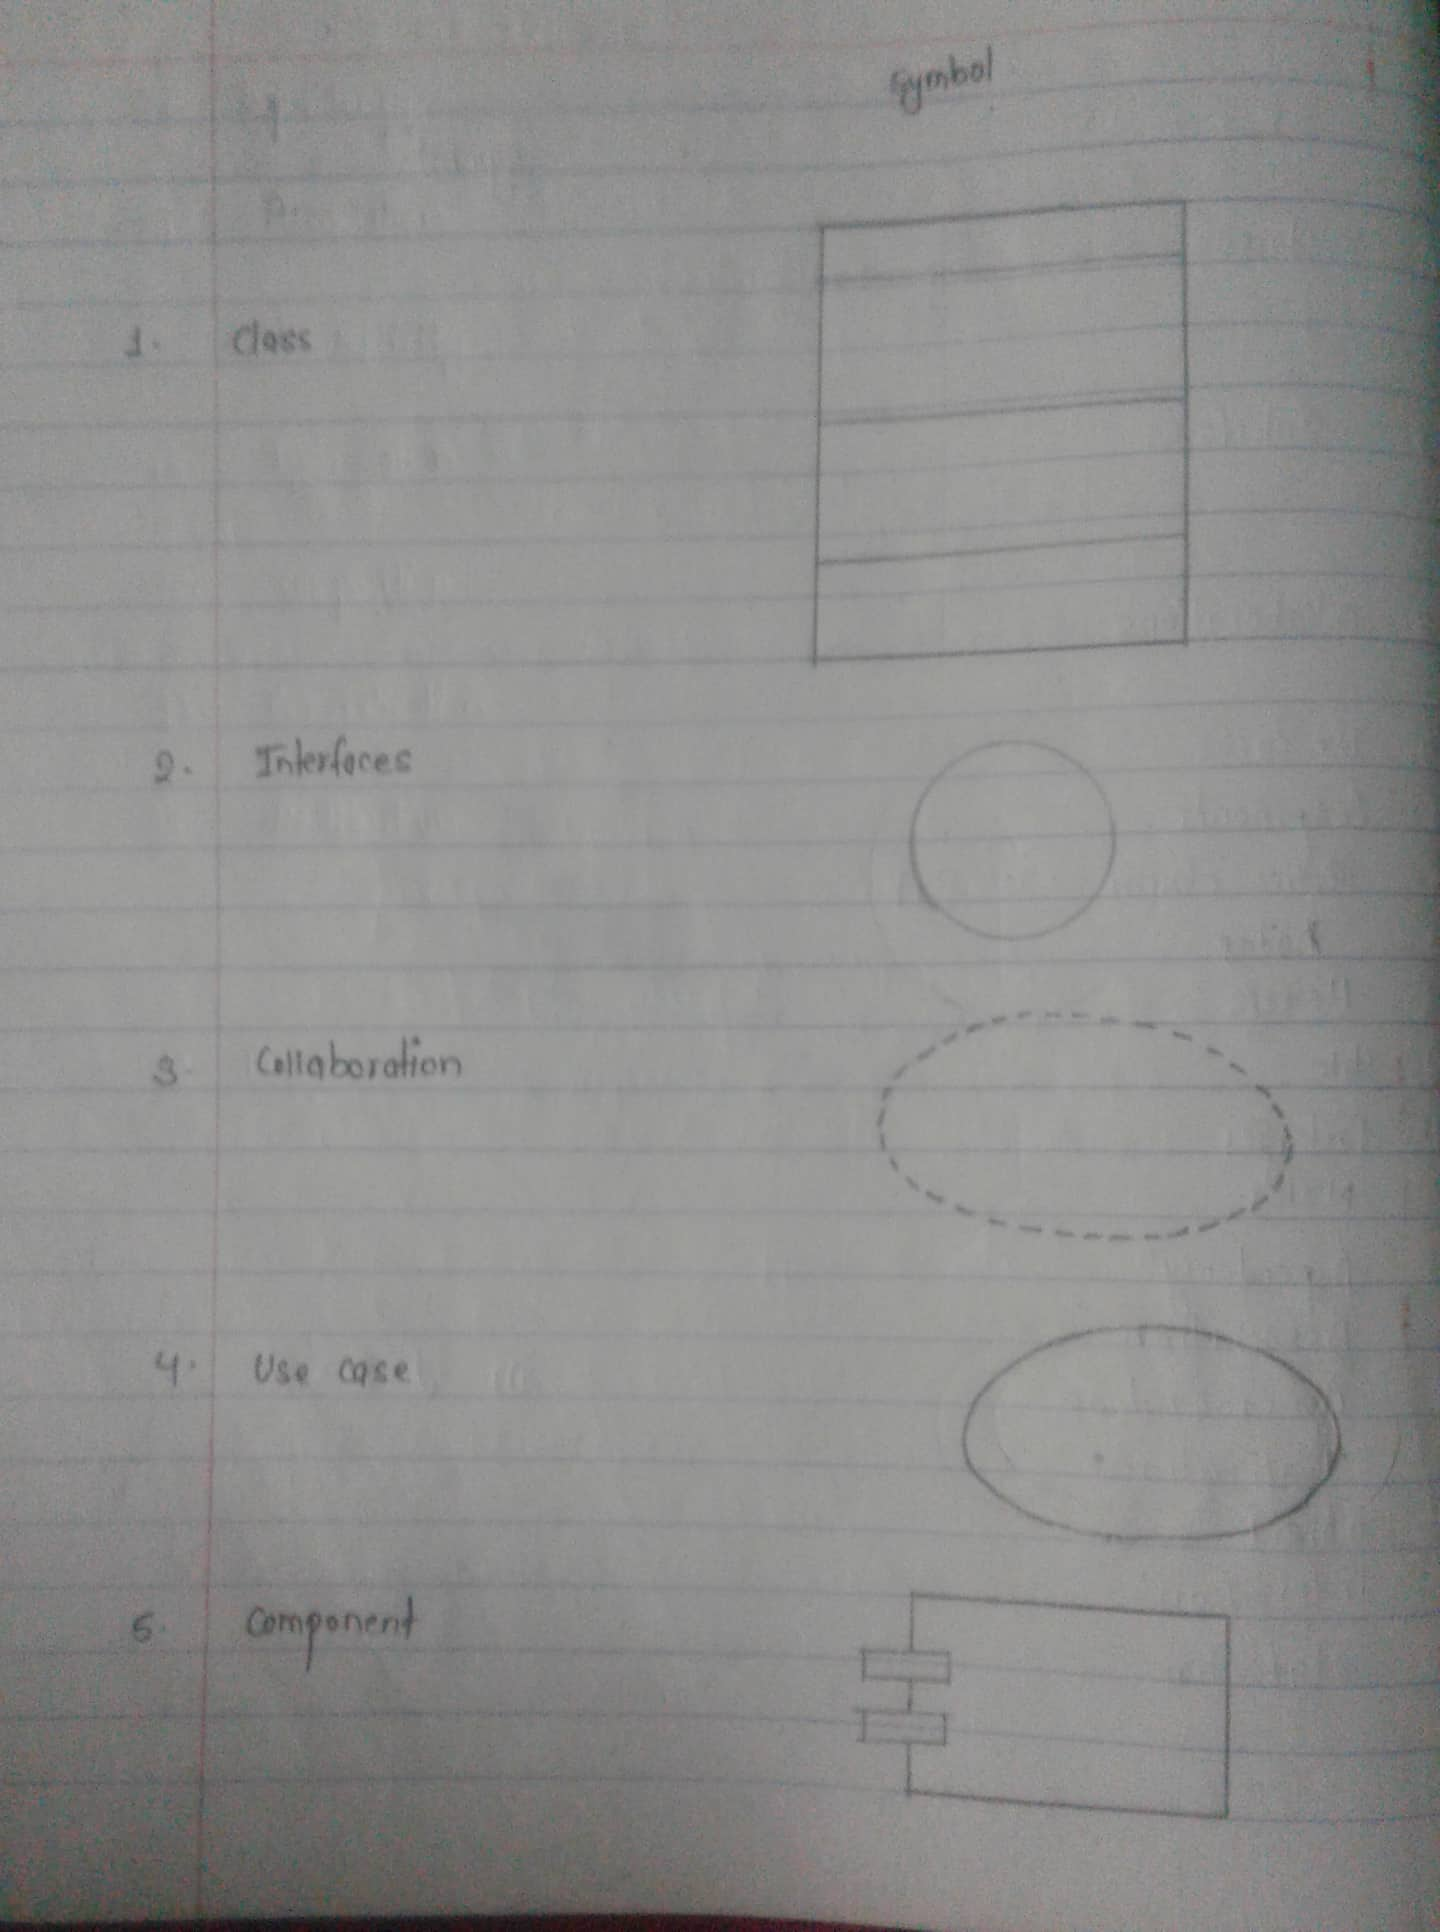 Symbol
1. Class
2. Interfaces
3. Collaboration
4. Use case
5. Component